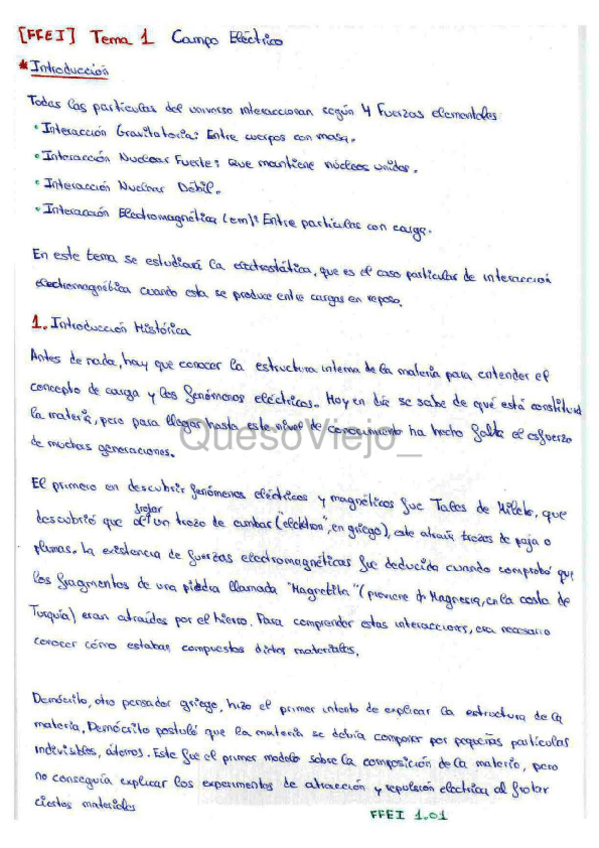 [FFEI] Tema 1 Campo Eléctrico
* Introducción
Todas las partículas del universo interaccionan según 4 Fuerzas elementales
• Interacción Gravitatoria: Entre cuerpos con masa.
• Interacción Nuclear Fuerte: Que mantiene núcleos unidos.
• Interacción Nuclear Débil.
• Interacción Electromagnética (em): Entre partículas con carga.
En este tema se estudiará la electrostática, que es el caso particular de interacción
electromagnética cuando esta se produce entre cargas en reposo.
1. Introducción Histórica
Antes de nada, hay que conocer la estructura interna de la materia para entender el
concepto de carga y los fenómenos eléctricos. Hoy en día se sabe de qué está constituida
la materia, pero para llegar hasta este nivel de conocimiento ha hecho falta el esfuerzo
de muchas generaciones.
QuesoViejo_
El primero en descubrir fenómenos eléctricos y magnéticos fue Tales de Mileto, que
descubrió que al frotar un trozo de ambar ("elektron", en griego), este atraía trozos de paja o
plumas. La existencia de fuerzas electromagnéticas fue deducida cuando comprobó que
los fragmentos de una piedra llamada "Magnetita" (proviene de Magnesia, en la costa de
Turquía) eran atraídos por el hierro. Para comprender estas interacciones, era necesario
conocer cómo estaban compuestos dichos materiales.
Demócrito, otro pensador griego, hizo el primer intento de explicar la estructura de la
materia, Demócrito postuló que la materia se debía componer por pequeñas partículas
indivisibles, átomos. Este fue el primer modelo sobre la composición de la materia, pero
no conseguía explicar los experimentos de atracción y repulsión eléctrica al frotar
ciertos materiales
FFEI 1.01